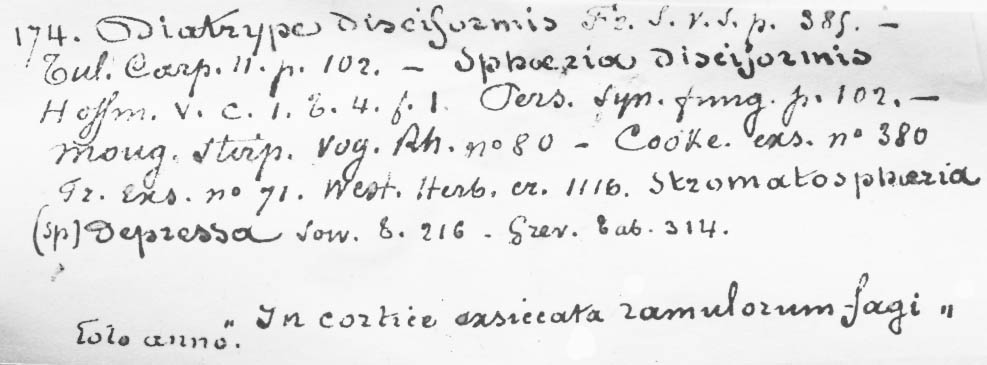 174. Diatrype Disciformis Fr. S. v. S. p. 385. –
Tul. Carp. 11. p. 102. – Sphæria Disciformis
Hoffm. v. c. 1. t. 4. f. 1. Pers. Syn. fung. p. 102. –
Moug. Stirp. Vog. Rh. nº 80 – Cooke. exs. nº 380
Fr. Exs. nº 71. West. Herb. cr. 1116. Stromatosphæria
(Sp) Depressa Sow. t. 216 – Grev. tab. 314.
In cortice exsiccata ramulorum fagi "
toto anno ".